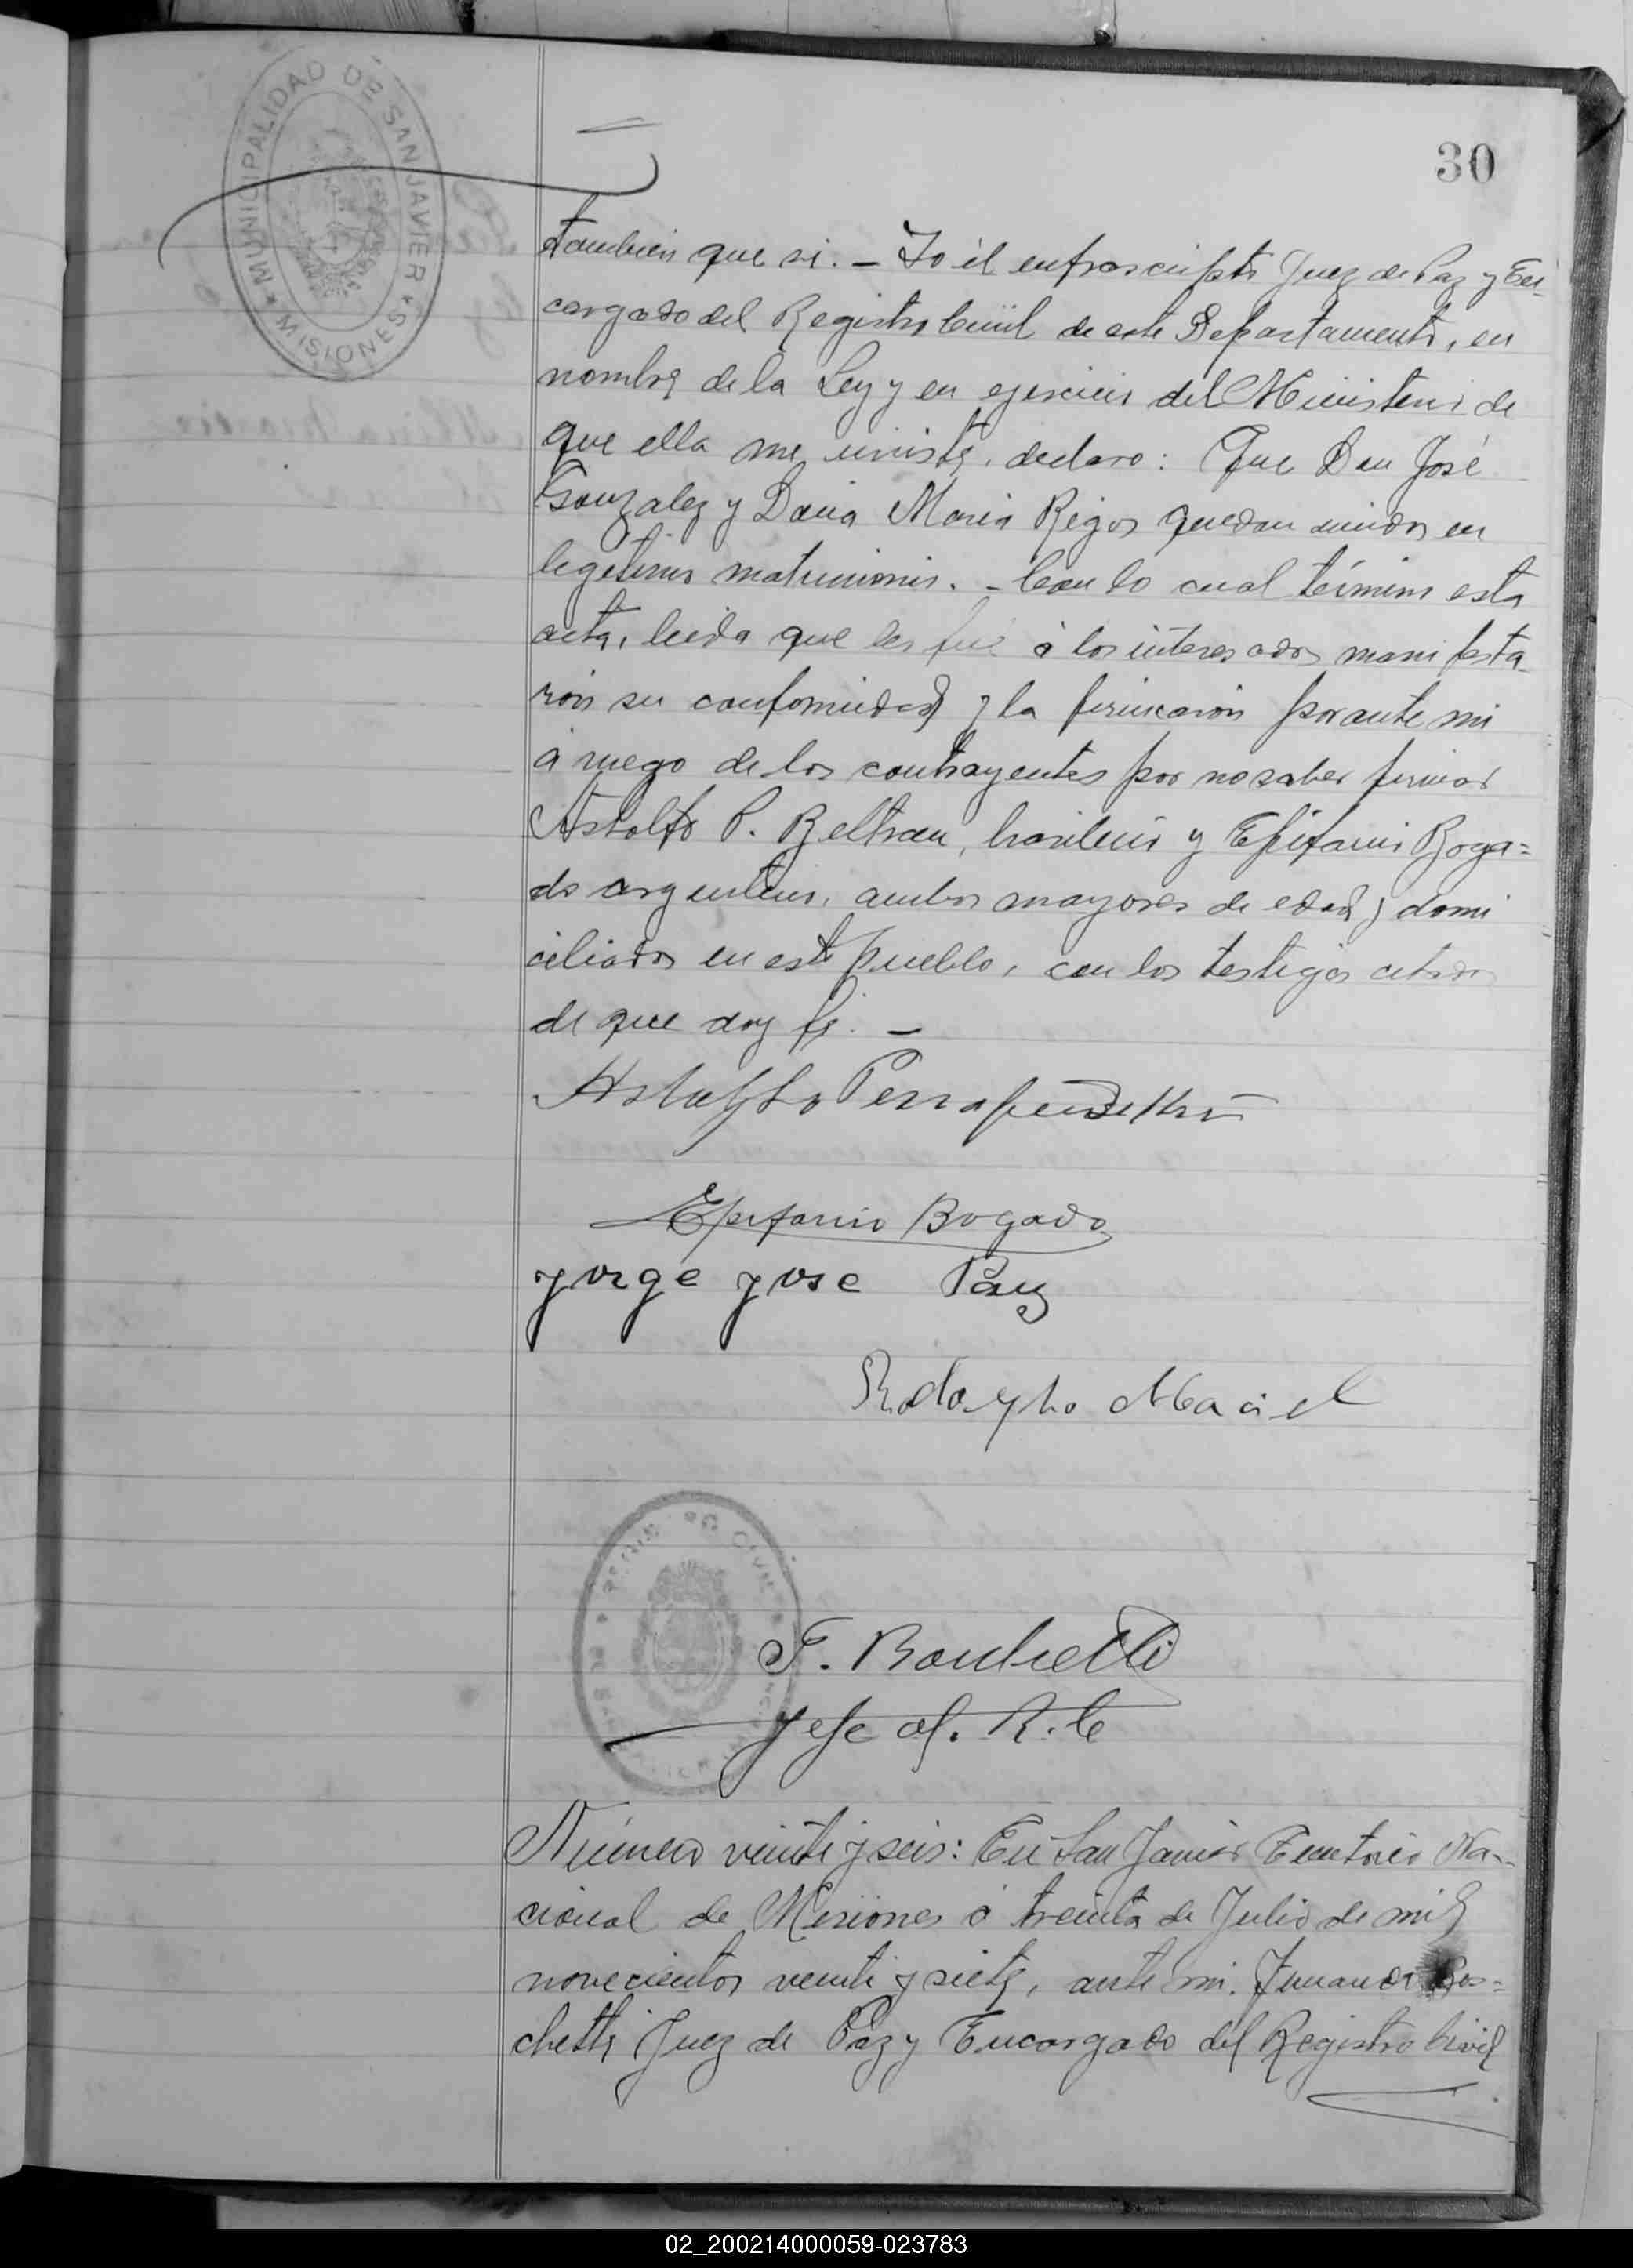 MUNICIPALIDAD DE SAN JAVIER
MISIONES
30
tambien que si. - Yo él enfrascripto Juez de Paz y En-
cargado del Registro Civil de este Departamento, en
nombre de la Ley y en ejercicio del Ministerio de
que ella me inviste, declaro: Que Don José
Gonzalez y Doña Maria Rigos quedan unidos en
legitimo matrimonio. - Con lo cual términe esta
acta, leida que les fué á los interesados manifesta-
ron su conformidad y la firmaron por ante mi
á ruego de los contrayentes por no saber firmar
Astolfo P. Beltran, brasilero y Epifanio Boga=
do argentino, ambos mayores de edad y domi
ciliados en este pueblo, con los testigos citados
de que doy fé. -
Astolfho
Epifanio Bogado
Jorge Jose Paz
Rodolpho Maciel
CIVIL
Jefe of. R. C
Número veinte y seis: En San Javier Territorio Na-
cional de Misiones á treinta de Julio de mil
novecientos veinte y siete, ante mi. Fernando
chetti Juez de Paz y Encargado del Registro Civil
02_200214000059-023783